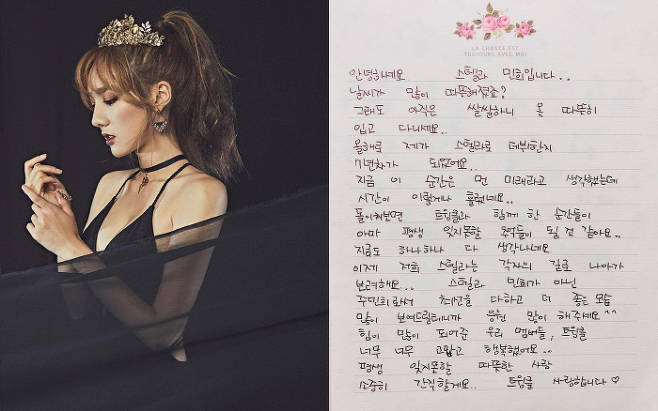 LA CHANCE EST
TOUJOURS AVEC MOI
안녕하세요 스텔라 민희입니다..
날씨가 많이 따뜻해졌죠?
그래도 아직은 쌀쌀하니 옷 따뜻히
입고 다니세요..
올해로 제가 스텔라로 데뷔한지
7년차가 되었어요..
지금 이 순간은 먼 미래라고 생각했는데
시간이 이렇게나 흘렀네요..
돌이켜보면 트윙클과 함께 한 순간들이
아마 평생 잊지못할 추억들이 될 것 같아요..
지금도 하나하나 다 생각나네요..
이제 저희 스텔라는 각자의 길로 나아가
보려해요.. 스텔라 민희가 아닌
주민희로서 최선을 다하고 더 좋은 모습
많이 보여드릴테니까 응원 많이 해주세요^^
힘이 많이 되어준 우리 멤버들, 트윙클
너무 너무 고맙고 행복했어요..
평생 잊지못할 따뜻한 사랑
소중히 간직할게요.. 트윙클 사랑합니다♡